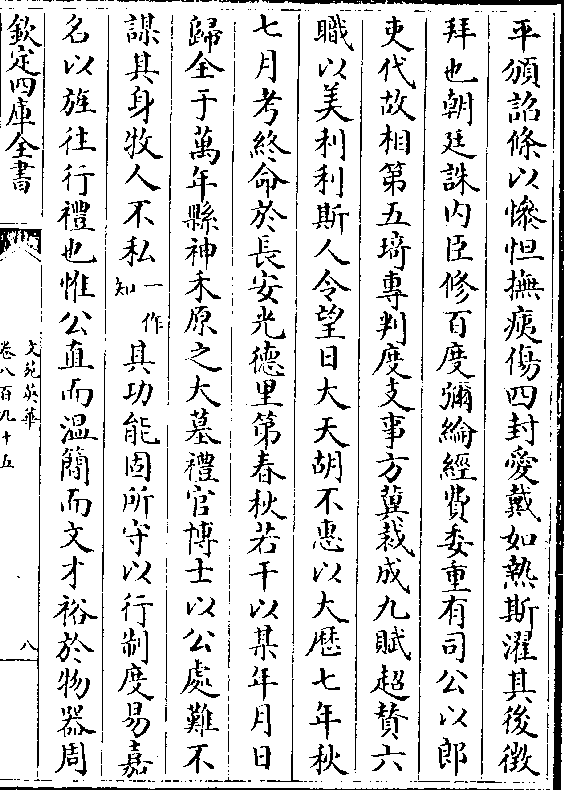 平頒詔條以慘怛撫痍傷四封愛戴如熱斯濯其後徴
拜也朝廷誅内臣修百度彌綸經費委重有司公以郎
吏代故相第五琦專判度支事方冀裁成九賦超賛六
職以美利利斯人令望日大天胡不惠以大厯七年秋
七月考終命於長安光德里第春秋若干以某年月日
歸全于萬年縣神禾原之大墓禮官博士以公處難不
謀其身牧人不私一作知其功能固所守以行制度易嘉
名以旌往行禮也惟公直而溫簡而文才裕於物器周
欽定四庫全書
文苑英華
卷八百九十五
八